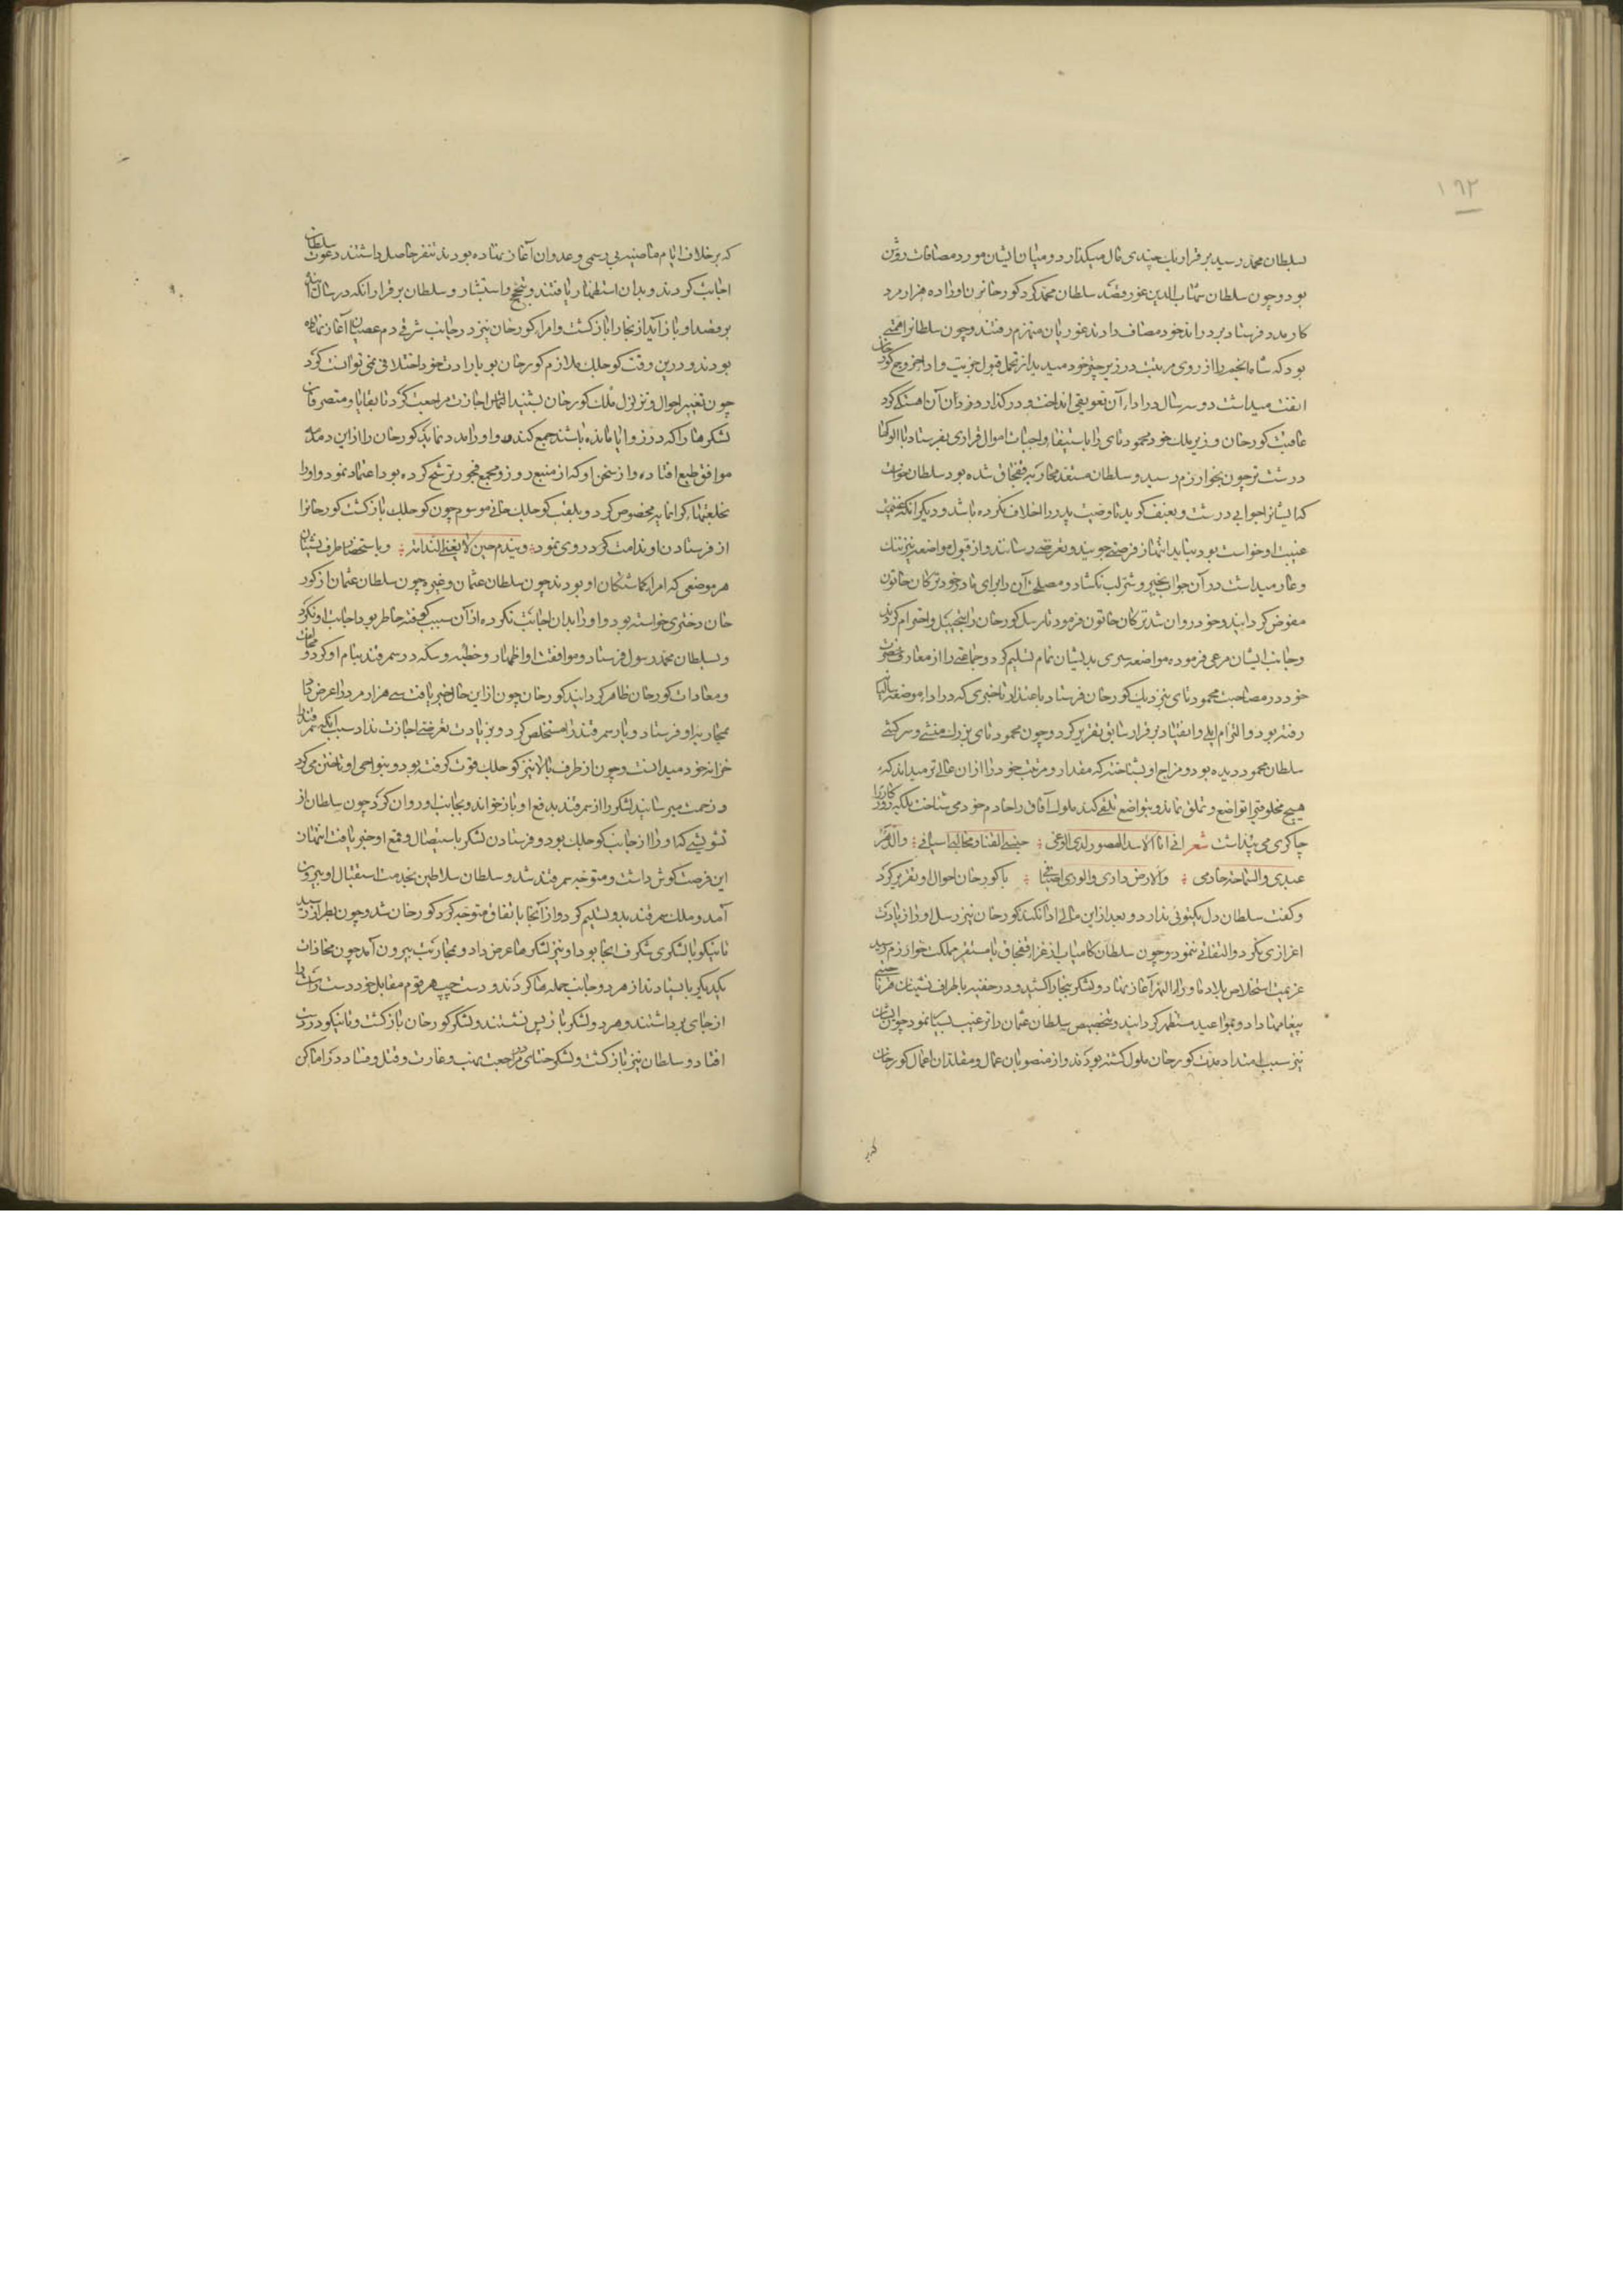 ١٩٢
سلطان محمد رسید برقرار یک چندی مال میگذارد و میان ایشان مورد مصافات روشن
بود و چون سلطان شهاب الدین غور قصد سلطان محمد کرد کورخان بذو ده هزار مرد
کار مدد فرستاد بر در اندخود مصاف دادند غوریان منهزم رفتند و چون سلطانرا همتی
بود که شاه انجم را از روی مرتبت در زیر چتر خود میدید از تحمل قبول جزیت و اداء خروج کورخان
انفت میداشت دو سه سال در اداء آن تعویقی انداخت و در گذارد و زدان آن آهستگی کرد
عاقبت کورخان وزیر ملک خود محمود تای را باستیفا واجبات اموال قراری بفرستاد با الوکها
درشت تر چون بخوارزم رسید و سلطان مستعد محاربه قفجاق شده بود سلطان نخواست
که ایشانرا جوابی درشت و بعنف گوید تا وصیت پدر را خلاف نکرده باشد و دیگر انکه عزیمت
غیبت او خواست بود نباید انتهاز فرصتی جویند و تعرضی رسانند و از قبول مواضعه نیز ننک
و عار میداشت در آن جواب بخیر و شر لب نکشاد و مصلحت آن را برای مادر خود ترکان خاتون
مفوض گردانید و خود روان شد ترکان خاتون فرمود تا رسل کورخان را بتبجیل و احترام کردند
و جانب ایشان مرعی فرمود و مواضعه سری بدیشان تمام تسلیم کرد و جماعتی را از معارف حضرت
خود در مصاحبت محمود تای بنزدیک کورخان فرستاد باعتذار تاخیری که در ادا مواضعه سالها
رفته بود و التزام ایلی و انقیاد برقرار سابق تقریر کرد و چون محمود تای بزرک منشی و سرکشی
سلطان محمود دیده بود و مزاج او بشناخته که مقدار و مرتبت خود را از ان عالی تر میداند که
هیچ مخلوقی را تواضع و تملق نماید و بتواضع تلقی کند ملوک آفاق را خادم خود می شناخت بلکه روزگار را
چاکری می پنداشت شعر انی انا الاسد الهصور لدی الوغی خیسی القنا و مخالبی اسیافی والدهر
عبدی والسماحة خادمی والارض داری والوری اضیافی با کورخان احوال او تقریر کرد
و کفت سلطان دل یکتوئی ندارد و بعد ازین مالی ادا نکند کورخان نیز رسل او را زیادت
اعزازی نکرد و التفاتی ننمود و چون سلطان کامیاب از غزاء قفجاق با مستقر مملکت خوارزم رسید
عزیمت استخلاص بلاد ماوراء النهر آغاز نهاد و لشکر ببخارا کشید و در خفیه باطراف نشینان هر ناحیتی
پیغامها داد و بمواعید مستظهر کردانید و بتخصیص سلطان عثمان را ترغیب بسیار نمود چون ایشان
نیز سبب امتداد مدت کورخان ملول گشته بودند و از منصوبان عمال و مقلدان اعمال کورخان
که بر
که بر خلاف ایام ماضیه بی رسمی و عدوان آغاز نهاده بودند تنفر حاصل داشتند دعوت سلطان
اجابت کردند و بدان استظهار یافتند و تبجح و استبشار و سلطان برقرار انکه در سال آینده
بر قصد او باز آید از بخارا باز کشت و امراء کورخان نیز در جانب شرقی دم عصیان آغاز نهاده
بودند و درین وقت کوچلک ملازم کورخان بود بارادت خود اختلافی نمی توانست کرد
چون تغییر احوال و تزلزل ملک کورخان بشنید التماس اجازت مراجعت کرد تا بقایا و متصرفان
لشکرها را که در زوایا مانده باشند جمع کند و او را مدد نماید کورخان را از این دمدمه
موافق طبع افتاده و از سخن او که از منبع زور و مجمع فجور ترشح کرده بود اعتماد نمود و او را
بخلعتهاء کرانمایه مخصوص کرد و بلقب کوچلک خانی موسوم چون کوچلک باز کشت کورخانرا
از فرستادن او ندامت کرد روی نمود ویندم حین لایغنی الندامة و باستحضار اطراف نشینان
هر موضعی که امراء گماشتکان او بودند چون سلطان عثمان و غیره چون سلطان عثمان از کور
خان دختری خواسته بود و او را بدان اجابت نکرده از آن سبب کوفته خاطر بود اجابت او نکرد
و بسلطان محمد رسول فرستاد و موافقت او اظهار و خطبه و سکه در سمرقند بنام او کرد و مخالفت
و معادات کورخان ظاهر کردانید کورخان چون از این حال خبر یافت سی هزار مرد را عرض داد
بمحاربه او فرستاد و باز سمرقند را مستخلص کرد و بزیادت تعرضی اجازت نداد سبب انکه سمرقند را
خزانه خود میدانست و چون از طرف بالا نیز کوچلک قوت گرفته بود و بنواحی او تاختن می کرد
و زحمت میرسانید لشکر را از سمرقند بدفع او باز خواند و بجانب او روان کرد چون سلطان از
تشویشی که او را از جانب کوچلک بود و فرستادن لشکر باستیصال و قمع او خبر یافت انتهاز
این فرصت کوش داشت و متوجه سمرقند شد و سلطان سلاطین بخدمت استقبال او بیرون
آمد و ملک سمرقند بدو تسلیم کرد و از آنجا باتفاق متوجه کرد کورخان شد و چون بطراز رسید
تاینکو با لشکری شکرف آنجا بود او نیز لشکرها عرض داد و بمحاربت بیرون آمد چون محاذات
یکدیگر بایستادند از هر دو جانب حمله ها کردند و دست چپ هر قوم مقابل خود دست راست را
از جای برداشتند و هر دو لشکر باز پس نشستند و لشکر کورخان باز کشت و تاینکو در دست
افتاد و سلطان نیز باز کشت و لشکر ختای در مراجعت بنهب و غارت و قتل و فساد در اماکن